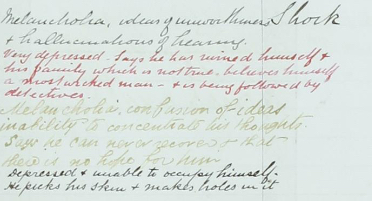 Melancholia, ideas of unworthiness Shock
& hallucinations of hearing.
Very depressed - Says he has ruined himself &
his family which is not true, believes himself
a most wicked man - & is being followed by
detectives.
Melancholia, confusion of ideas
inability to concentrate his thoughts.
Says he can never recover & that
there is no hope for him
Depressed & unable to occupy himself.
He picks his skin & makes holes in it